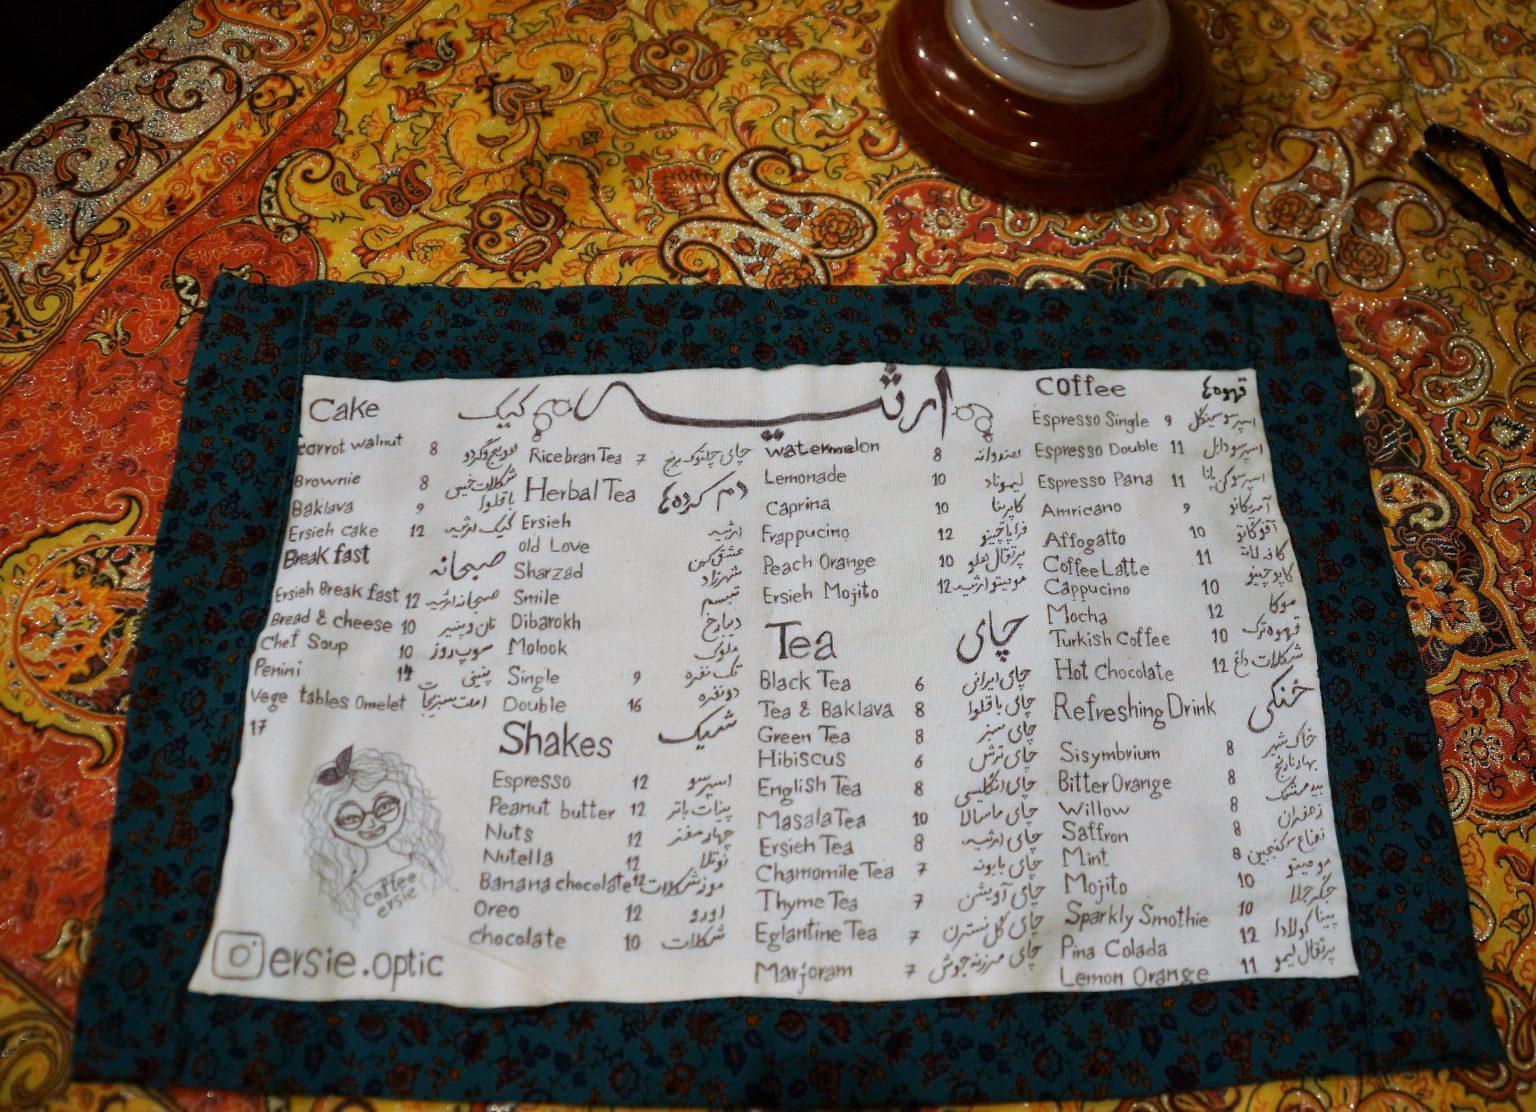 ارثیه
Cake کیک
Corrot walnut 8 هویج گردو
Brownie 8 شکلات خیس
Baklava 9 باقلوا
Ersieh cake 12 کیک ارثیه
Break fast صبحانه
Ersieh Break fast 12 صبحانه ارثیه
Bread & cheese 10 نان و پنیر
Chef Soup 10 سوپ روز
Penini 14 پنینی
Vege tables Omelet املت سبزیجات
17
coffee
ersie
ersie.optic
Ricebran Tea 7 چای چلتوک برنج
Herbal Tea دم کرده ها
Ersieh ارثیه
old Love عشق کهن
Sharzad شهرزاد
Smile تبسم
Dibarokh دیبارخ
Molook ملوک
Single 9 تک نفره
Double 16 دو نفره
Shakes شیک
Espresso 12 اسپرسو
Peanut butter 12 پینات باتر
Nuts 12 چهار مغز
Nutella 12 نوتلا
Banana chocolate 12 موز شکلات
Oreo 12 اورو
chocolate 10 شکلات
watermelon 8 هندوانه
Lemonade 10 لیموناد
Caprina 10 کاپرینا
Frappucino 12 فراپاچینو
Peach Orange 10 پرتقال هلو
Ersieh Mojito 12 موهیتو ارثیه
Tea چای
Black Tea 6 چای ایرانی
Tea & Baklava 8 چای باقلوا
Green Tea 8 چای سبز
Hibiscus 6 چای ترش
English Tea 8 چای انگلیسی
Masala Tea 10 چای ماسالا
Ersieh Tea 8 چای ارثیه
Chamomile Tea 7 چای بابونه
Thyme Tea 7 چای آویشن
Eglantine Tea 7 چای گل نسترن
Marjoram 7 چای مرزنجوش
Coffee قهوه ها
Espresso Single 9 اسپرسو سینگل
Espresso Double 11 اسپرسو دابل
Espresso Pana 11 اسپرسو کن پانا
Amricano 9 آمریکانو
Affogatto 10 آفوگاتو
Coffee Latte 11 کافه لات
Cappucino 10 کاپوچینو
Mocha 12 موکا
Turkish Coffee 10 قهوه ترک
Hot Chocolate 12 شکلات داغ
Refreshing Drink خنکی
Sisymbrium 8 خاکشیر
Bitter Orange 8 بهار نارنج
Willow 8 بیدمشک
Saffron 8 زعفران
Mint 8 نعناع سکنجبین
Mojito 10 موهیتو
Sparkly Smothie 10
Pina Colada 12 پینا کولادا
Lemon Orange 11 پرتقال لیمو